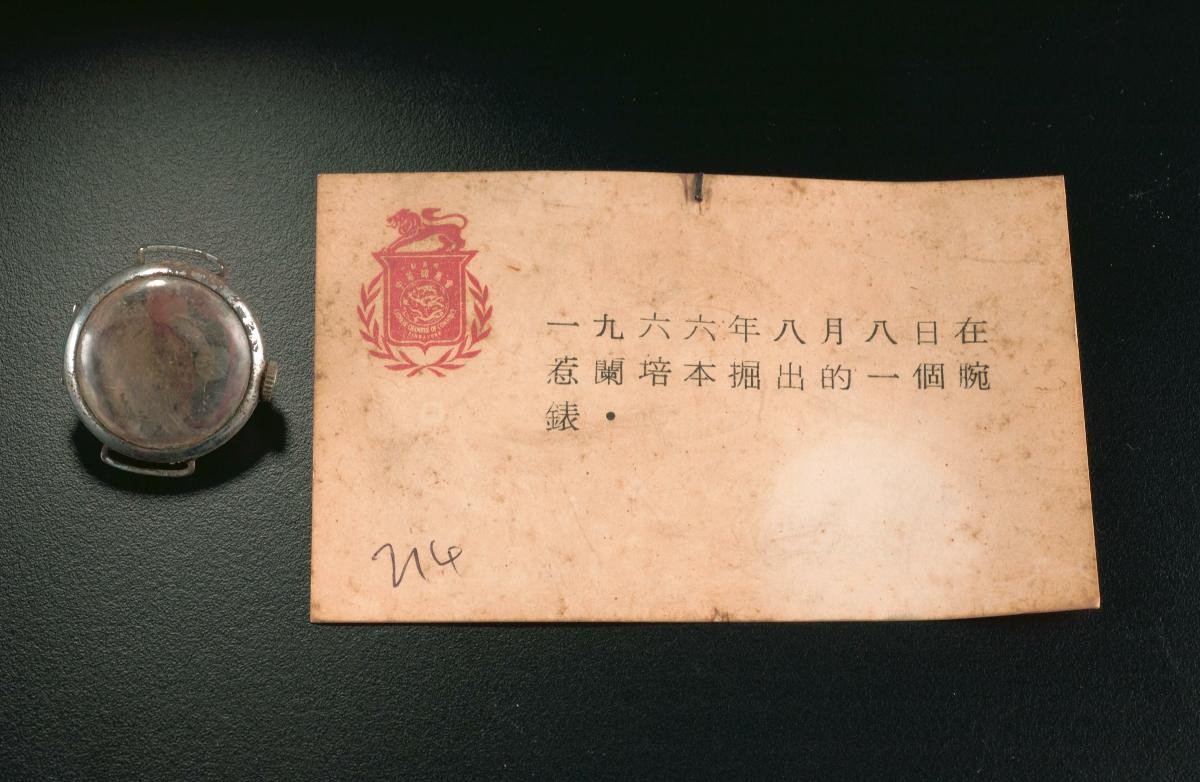 CHINESE CHAMBER OF COMMERCE
SINGAPORE
一九六六年八月八日在
惹蘭培本掘出的一個腕
錶．
214